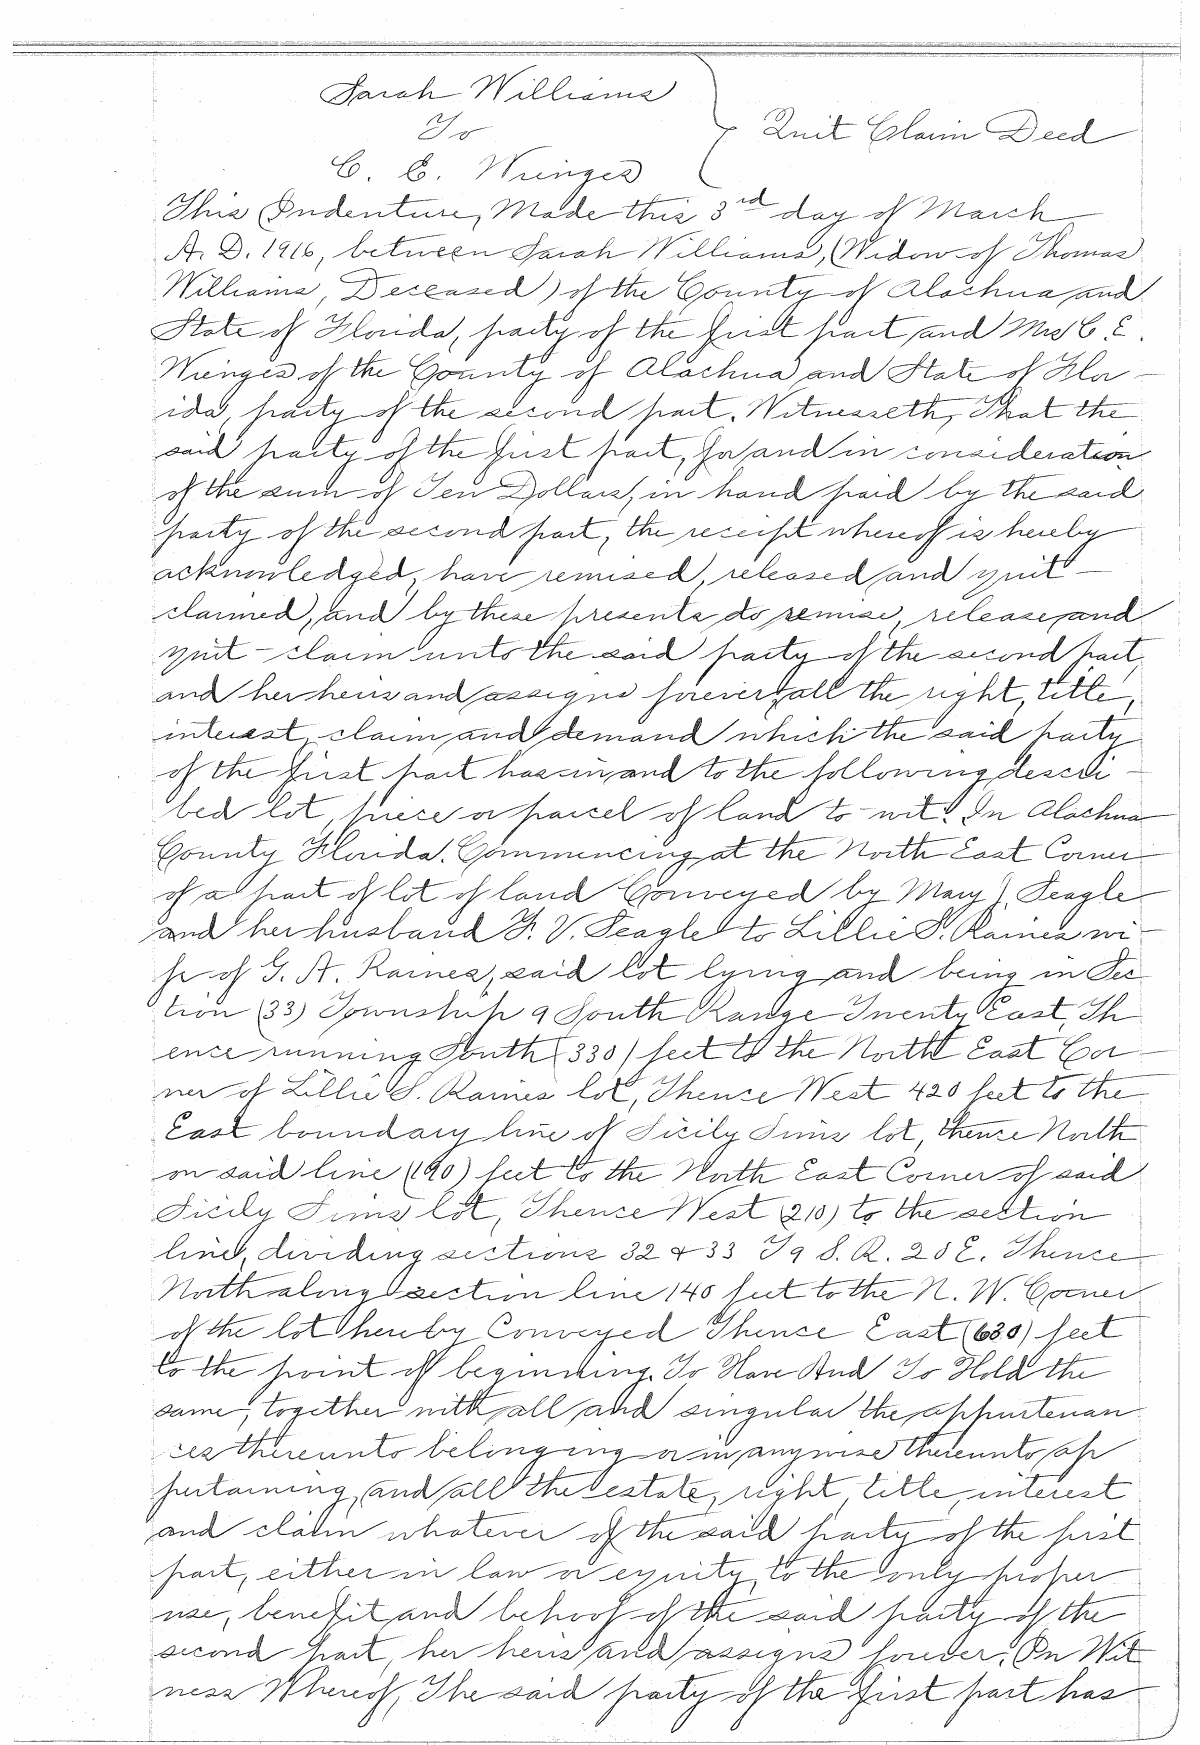 Sarah Williams
To
Quit Claim Deed
C. E. Wienges
This Indenture, Made this 3rd day of March
A. D. 1916, between Sarah Williams, (Widow of Thomas
Williams, Deceased) of the County of Alachua and
State of Florida, party of the first part and Mrs C. E.
Wienges of the County of Alachua and State of Flor-
ida, party of the second part. Witnesseth, That the
said party of the first part, for and in consideration
of the sum of Ten Dollars, in hand paid by the said
party of the second part, the receipt whereof is hereby
acknowledged, have remised, released and quit-
claimed, and by these presents do remise, release and
quit-claim unto the said party of the second part,
and her heirs and assigns forever, all the right, title,
interest, claim and demand which the said party
of the first part has in and to the following descri-
bed lot, piece or parcel of land to-wit: In Alachua
County Florida. Commencing at the North East Corner
of a part of lot of land Conveyed by Mary J. Seagle
and her husband F. V. Seagle to Lillie S. Raines wi-
fe of G. A. Raines, said lot lying and being in Sec
tion (33) Township 9 South Range Twenty East, Th
ence running South (330) feet to the North East Cor-
ner of Lillie S. Raines lot, Thence West 420 feet to the
East boundary line of Sicily Sims lot, thence North
on said line (190) feet to the North East Corner of said
Sicily Sims lot, Thence West (210) to the section
line, dividing sections 32 & 33 T 9 S. R. 20 E. Thence
North along section line 140 feet to the N. W. Corner
of the lot hereby Conveyed Thence East (630) feet
to the point of beginning. To Have And To Hold the
same, together with all and singular the appurtenan
ces thereunto belonging or in anywise thereunto ap
pertaining, and all the estate, right, title, interest
and claim whatever of the said party of the first
part, either in law or equity, to the only proper
use, benefit and behoof of the said party of the
second part, her heirs and assigns forever. In Wit
ness Whereof, The said party of the first part has